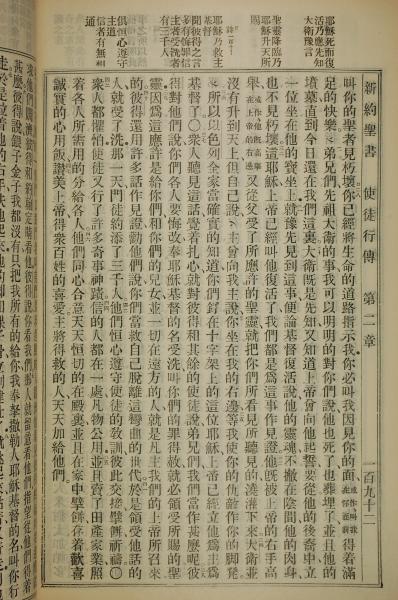 新約聖書 使徒行傳 第二章 一百九十二
耶穌死而復
活乃應先知
大衞豫言
聖靈降臨乃
耶穌升天所
賜
耶穌乃救主
基督
聞彼得之言
多有悔罪信
主者受洗者
三千人
俱恒心遵守
主道
信者有無相
通
叫你的聖者見朽壞你已經將生命的道路指示我你必叫我因見你的面得着滿
足的快樂○弟兄們先祖大衞的事我可以明明的對你們說他也死了也葬埋了並且他的
墳墓直到今日還在我們這裏大衞既是先知又知道上帝曾向他起誓要從他的後裔中立
一位坐在他的寶座上就豫先見到這事便論基督復活說他的靈魂不撇在陰間他的肉身
也不見朽壞這耶穌上帝已經叫他復活了我們都是爲這事作見證他既被上帝的右手高
舉又從父受了所應許的聖靈就把你們所看見所聽見的澆灌下來大衞並
沒有升到天上但自己說主曾向我主說你坐在我的右邊等我使你的仇敵作你的脚凳
所以以色列全家當確實的知道你們釘在十字架上的這位耶穌上帝已經立他爲主爲
基督了○衆人聽見這話覺着扎心就對彼得和其餘的使徒說弟兄們我們當作甚麼呢彼
得對他們說你們各人要悔改奉耶穌基督的名受洗叫你們的罪得赦就必領受所賜的聖
靈因爲這應許是給你們和你們的兒女並一切在遠方的人就是凡主我們的上帝所召來
的彼得還用許多話作見證勸他們說你們當救自己脫離這彎曲的世代於是領受他話的
人就受了洗那一天門徒約添了三千人他們恒心遵守使徒的敎訓彼此交接擘餅祈禱○
衆人都懼怕使徒又行了許多奇事神蹟信的人都在一處凡物公用並且賣了田產家業照
着各人所需用的分給各人他們同心合意天天恒切的在殿裏並且在家中擘餅存着歡喜
誠實的心用飯讚美上帝得衆百姓的喜愛主將得救的人天天加給他們